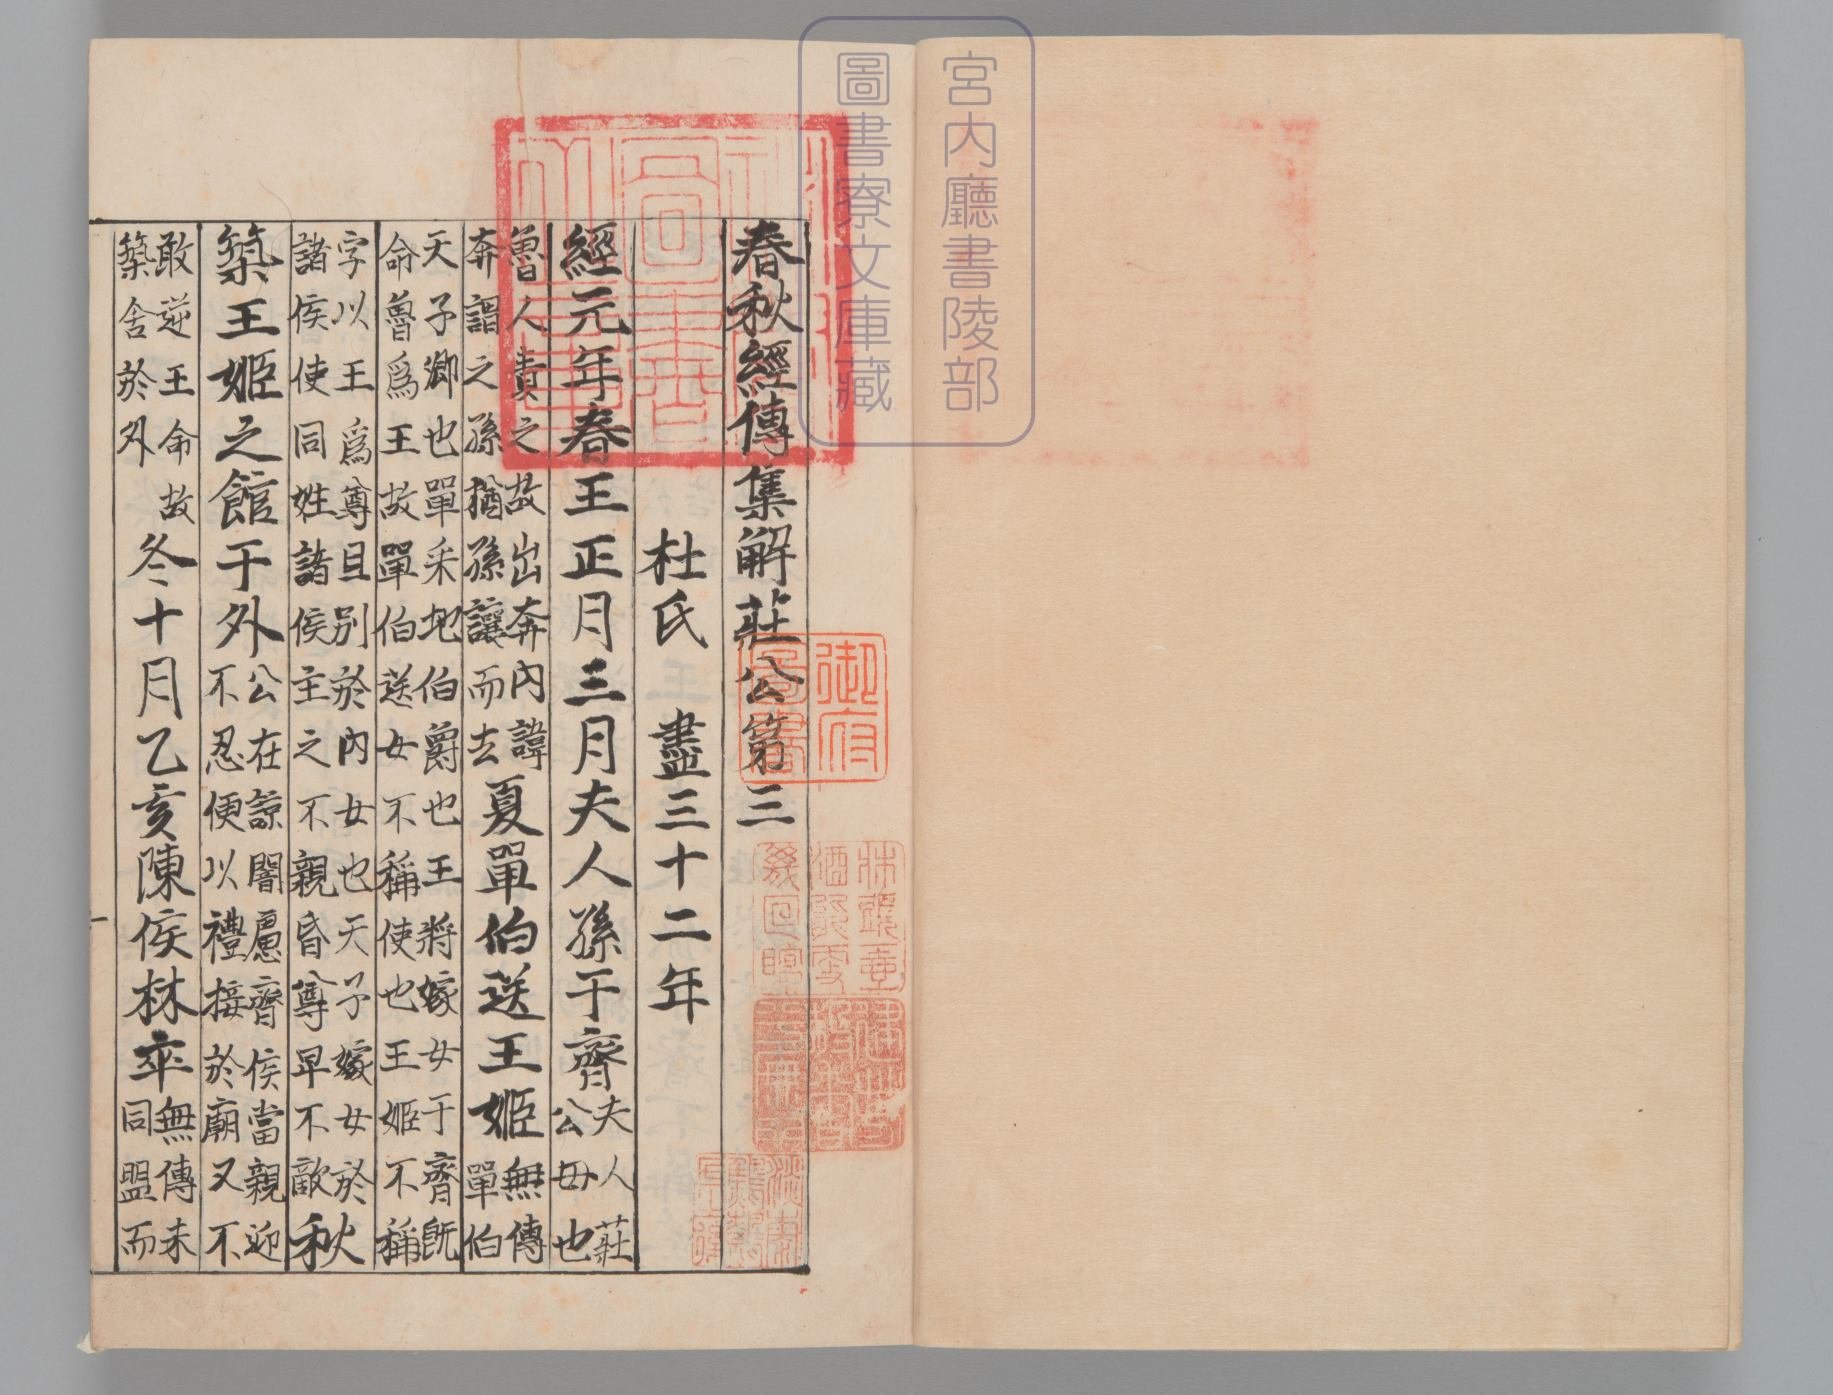 宮内廳書陵部
圖書寮文庫藏
春秋經傳集解莊公第三
杜氏 盡三十二年
經元年春王正月三月夫人孫于齊夫人莊公母也
魯人責之故出奔內諱奔謂之孫猶孫讓而去夏單伯送王姬無傳單伯
天子卿也單采地伯爵也王將嫁女于齊既命魯爲王故單伯送女不稱使也王姬不稱
字以王爲尊且别於內女也天子嫁女於諸侯使同姓諸侯主之不親昏尊卑不敵秋
築王姬之館于外公在諒闇慮齊侯當親迎不忍便以禮接於廟又不
敢逆王命故築舍於外冬十月乙亥陳侯林卒無傳未同盟而
御府圖書